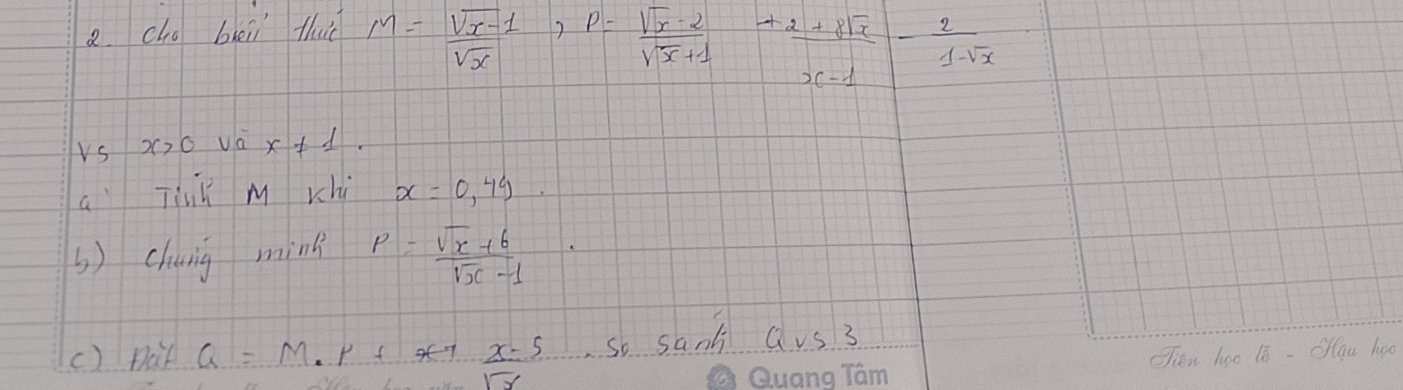 2. Cho biểu thức M = \frac{\sqrt{x}-1}{\sqrt{x}} ; P = \frac{\sqrt{x}-2}{\sqrt{x}+1} + \frac{2+8\sqrt{x}}{x-1} - \frac{2}{1-\sqrt{x}}
Vs x>0 và x ≠ 1.
a) Tính M khi x = 0,49.
b) Chứng minh P = \frac{\sqrt{x}+6}{\sqrt{x}-1}.
c) Đặt Q = M.P + \frac{x-5}{\sqrt{x}}. So sánh Q vs 3
Quang Tâm
Tiên học lễ - Hậu học